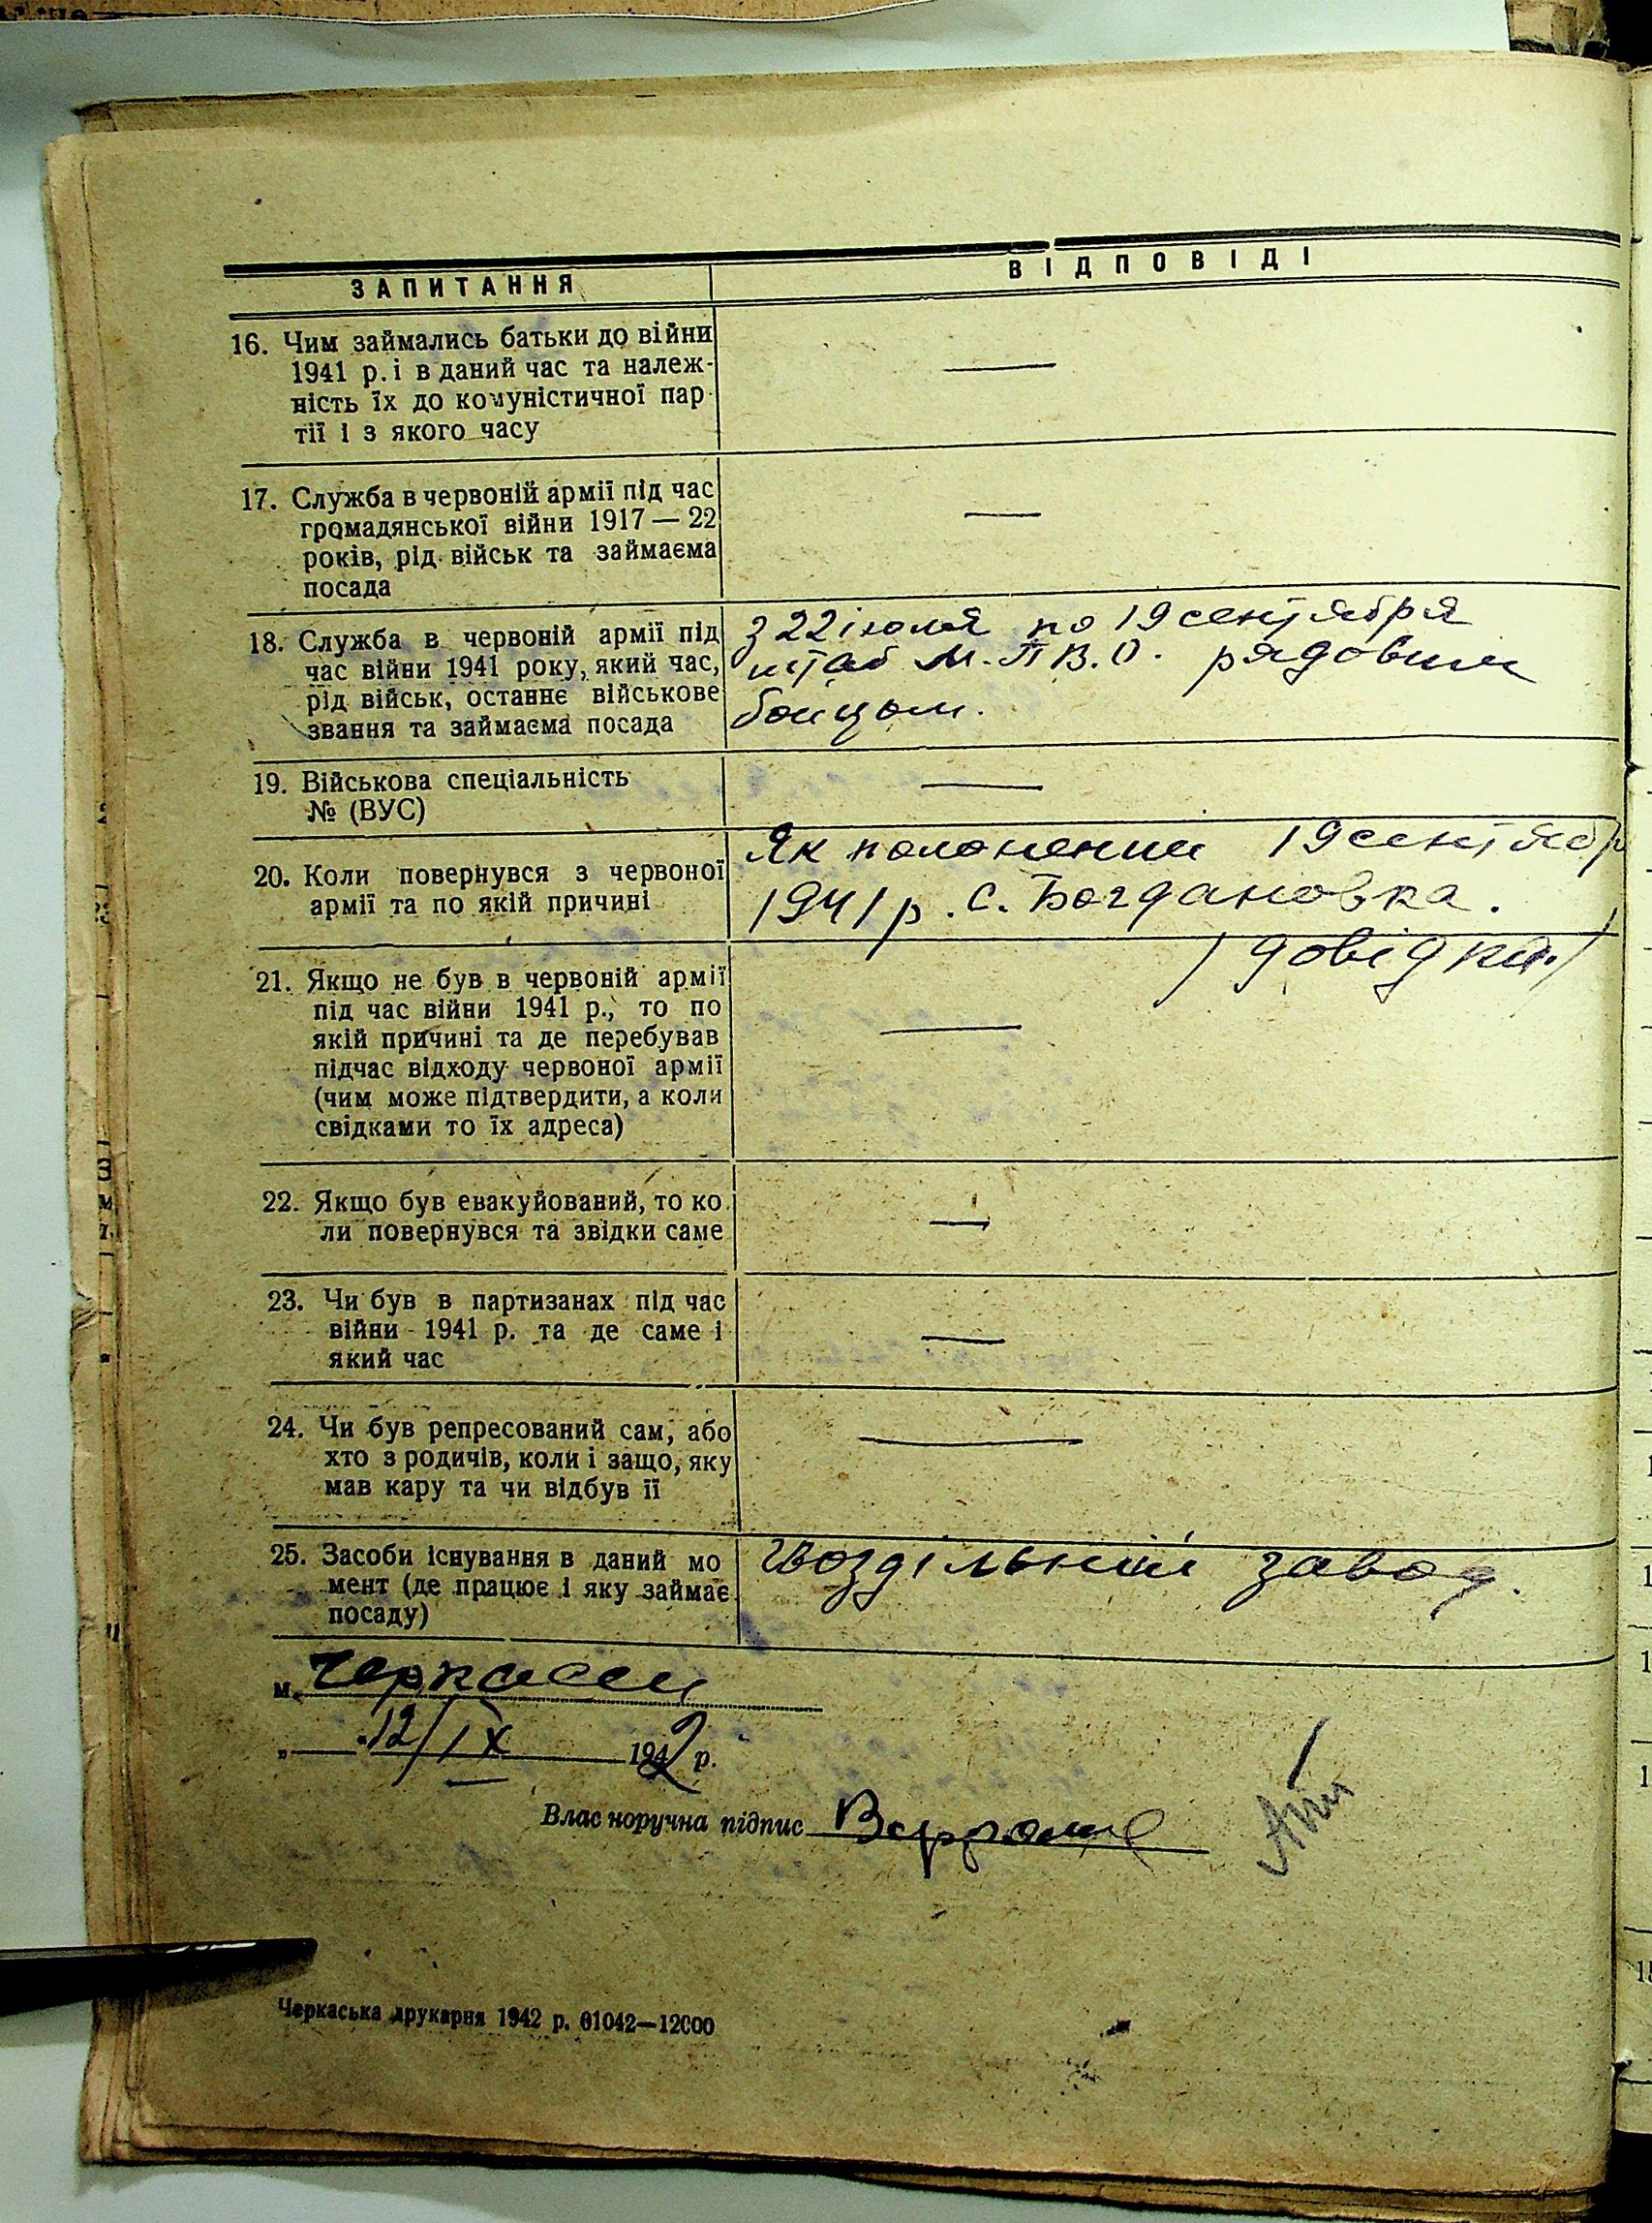 ЗАПИТАННЯ
ВІДПОВІДІ
16. Чим займались батьки до війни
1941 р. і в даний час та належ-
ність їх до комуністичної пар
тії і з якого часу
—
17. Служба в червоній армії під час
громадянської війни 1917 — 22
років, рід військ та займаєма
посада
—
18. Служба в червоній армії під
час війни 1941 року, який час,
рід військ, останнє військове
звання та займаєма посада
З 22 іюля по 19 сентября
штаб М.П.В.О. рядовим
бойцом.
19. Військова спеціальність
№ (ВУС)
—
20. Коли повернувся з червоної
армії та по якій причині
Як полонений 19 сентябр
1941 р. С. Богдановка.
/довідка/
21. Якщо не був в червоній армії
під час війни 1941 р., то по
якій причині та де перебував
підчас відходу червоної армії
(чим може підтвердити, а коли
свідками то їх адреса)
—
22. Якщо був евакуйований, то ко
ли повернувся та звідки саме
—
23. Чи був в партизанах під час
війни 1941 р. та де саме і
який час
—
24. Чи був репресований сам, або
хто з родичів, коли і защо, яку
мав кару та чи відбув її
—
25. Засоби існування в даний мо
мент (де працює і яку займає
посаду)
Гвоздільний завод.
м. Черкаси
„ 12/IX 1942 р.
Власноручна підпис
Черкаська друкарня 1942 р. 01042—12000